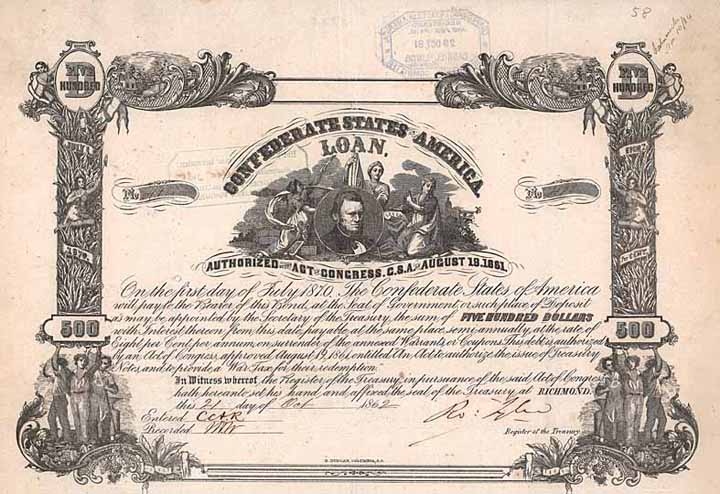 58
FIVE
HUNDRED
FIVE
HUNDRED
29 OCT 81
CONFEDERATE STATES OF AMERICA
LOAN,
No
No
AUTHORIZED BY ACT OF CONGRESS, C.S.A. OF AUGUST 19, 1861.
On the first day of July 1870, The Confederate States of America
will pay to the Bearer of this Bond, at the Seat of Government, or such place of Deposit
as may be appointed by the Secretary of the Treasury, the sum of FIVE HUNDRED DOLLARS
with Interest thereon from this date, payable at the same place, semi-annually, at the rate of
Eight per Cent per annum, on surrender of the annexed Warrants or Coupons. This debt is authorized
by an Act of Congress, approved August 19, 1861, entitled An Act to authorize the issue of Treasury
Notes, and to provide a War Tax for their redemption.
500
500
In Witness whereof, the Register of the Treasury, in pursuance of the said Act of Congress
hath hereunto set his hand and affixed the seal of the Treasury at RICHMOND,
this 21 day of Oct 1862
Entered
Recorded
Register of the Treasury.